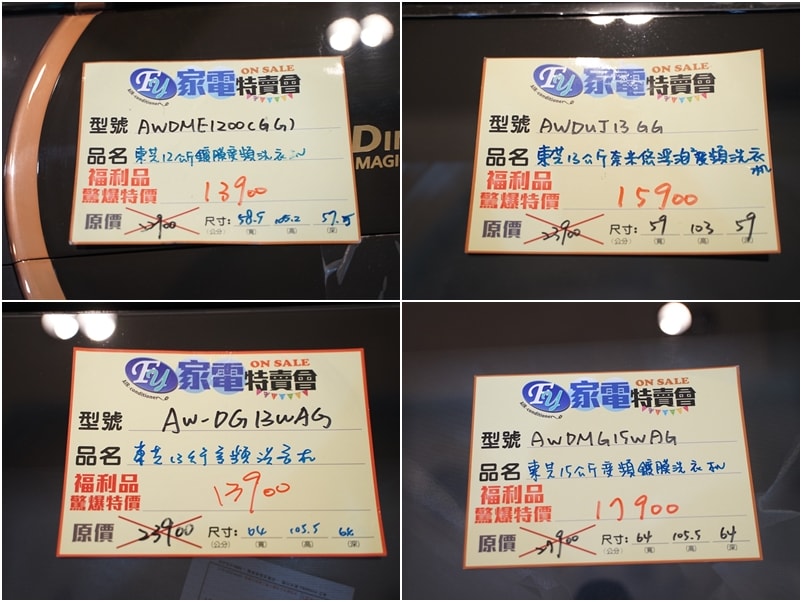 ON SALE
Fu 家電特賣會
Air conditioner
型號 AWDME1200(GG)
品名 東芝12公斤鍍膜變頻洗衣機
福利品
驚爆特價 13900
原價 23900 尺寸: 58.5 105.2 57.5
(公分) (寬) (高) (深)
DI
MAGI
ON SALE
Fu 家電特賣會
Air conditioner
型號 AWDUJ13GG
品名 東芝13公斤奈米悠浮泡變頻洗衣機
福利品
驚爆特價 15900
原價 23900 尺寸: 59 103 59
(公分) (寬) (高) (深)
ON SALE
Fu 家電特賣會
Air conditioner
型號 AW-DG13WAG
品名 東芝13公斤變頻洗衣機
福利品
驚爆特價 13900
原價 23900 尺寸: 64 105.5 64
(公分) (寬) (高) (深)
ON SALE
Fu 家電特賣會
Air conditioner
型號 AWDMG15WAG
品名 東芝15公斤變頻鍍膜洗衣機
福利品
驚爆特價 17900
原價 尺寸: 64 105.5 64
(公分) (寬) (高) (深)